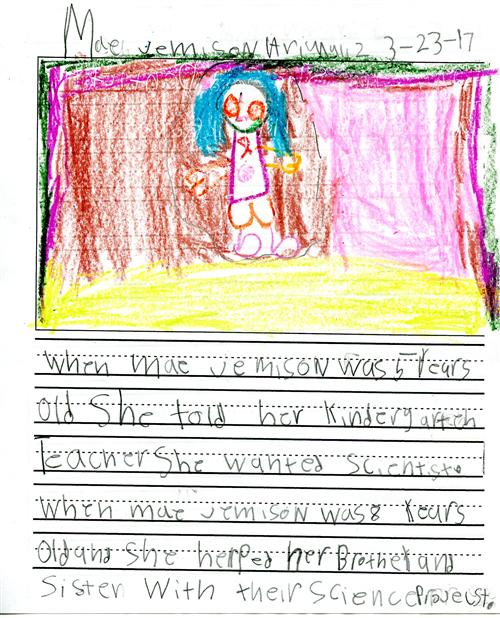 Mae Jemison 3-23-17
When mae Jemison was 5 Years
old She told her Kindergarten
teacher She wanted Scientst.
When mae Jemison was 8 Years
old and She helped her Brother and
Sister With their Science Projecst.